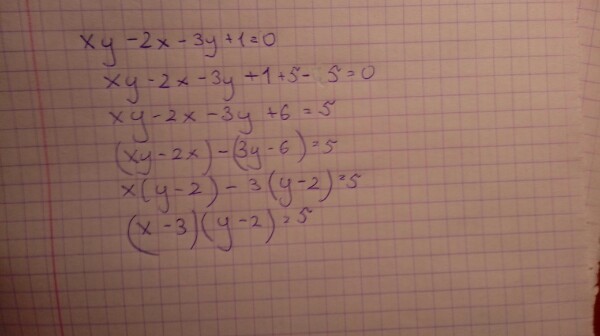 xy -2x - 3y +1=0
xy -2x -3y +1+5- 5=0
xy -2x -3y +6 =5
(xy -2x) -(3y -6)=5
x(y -2) - 3(y -2)=5
(x -3)(y -2)=5